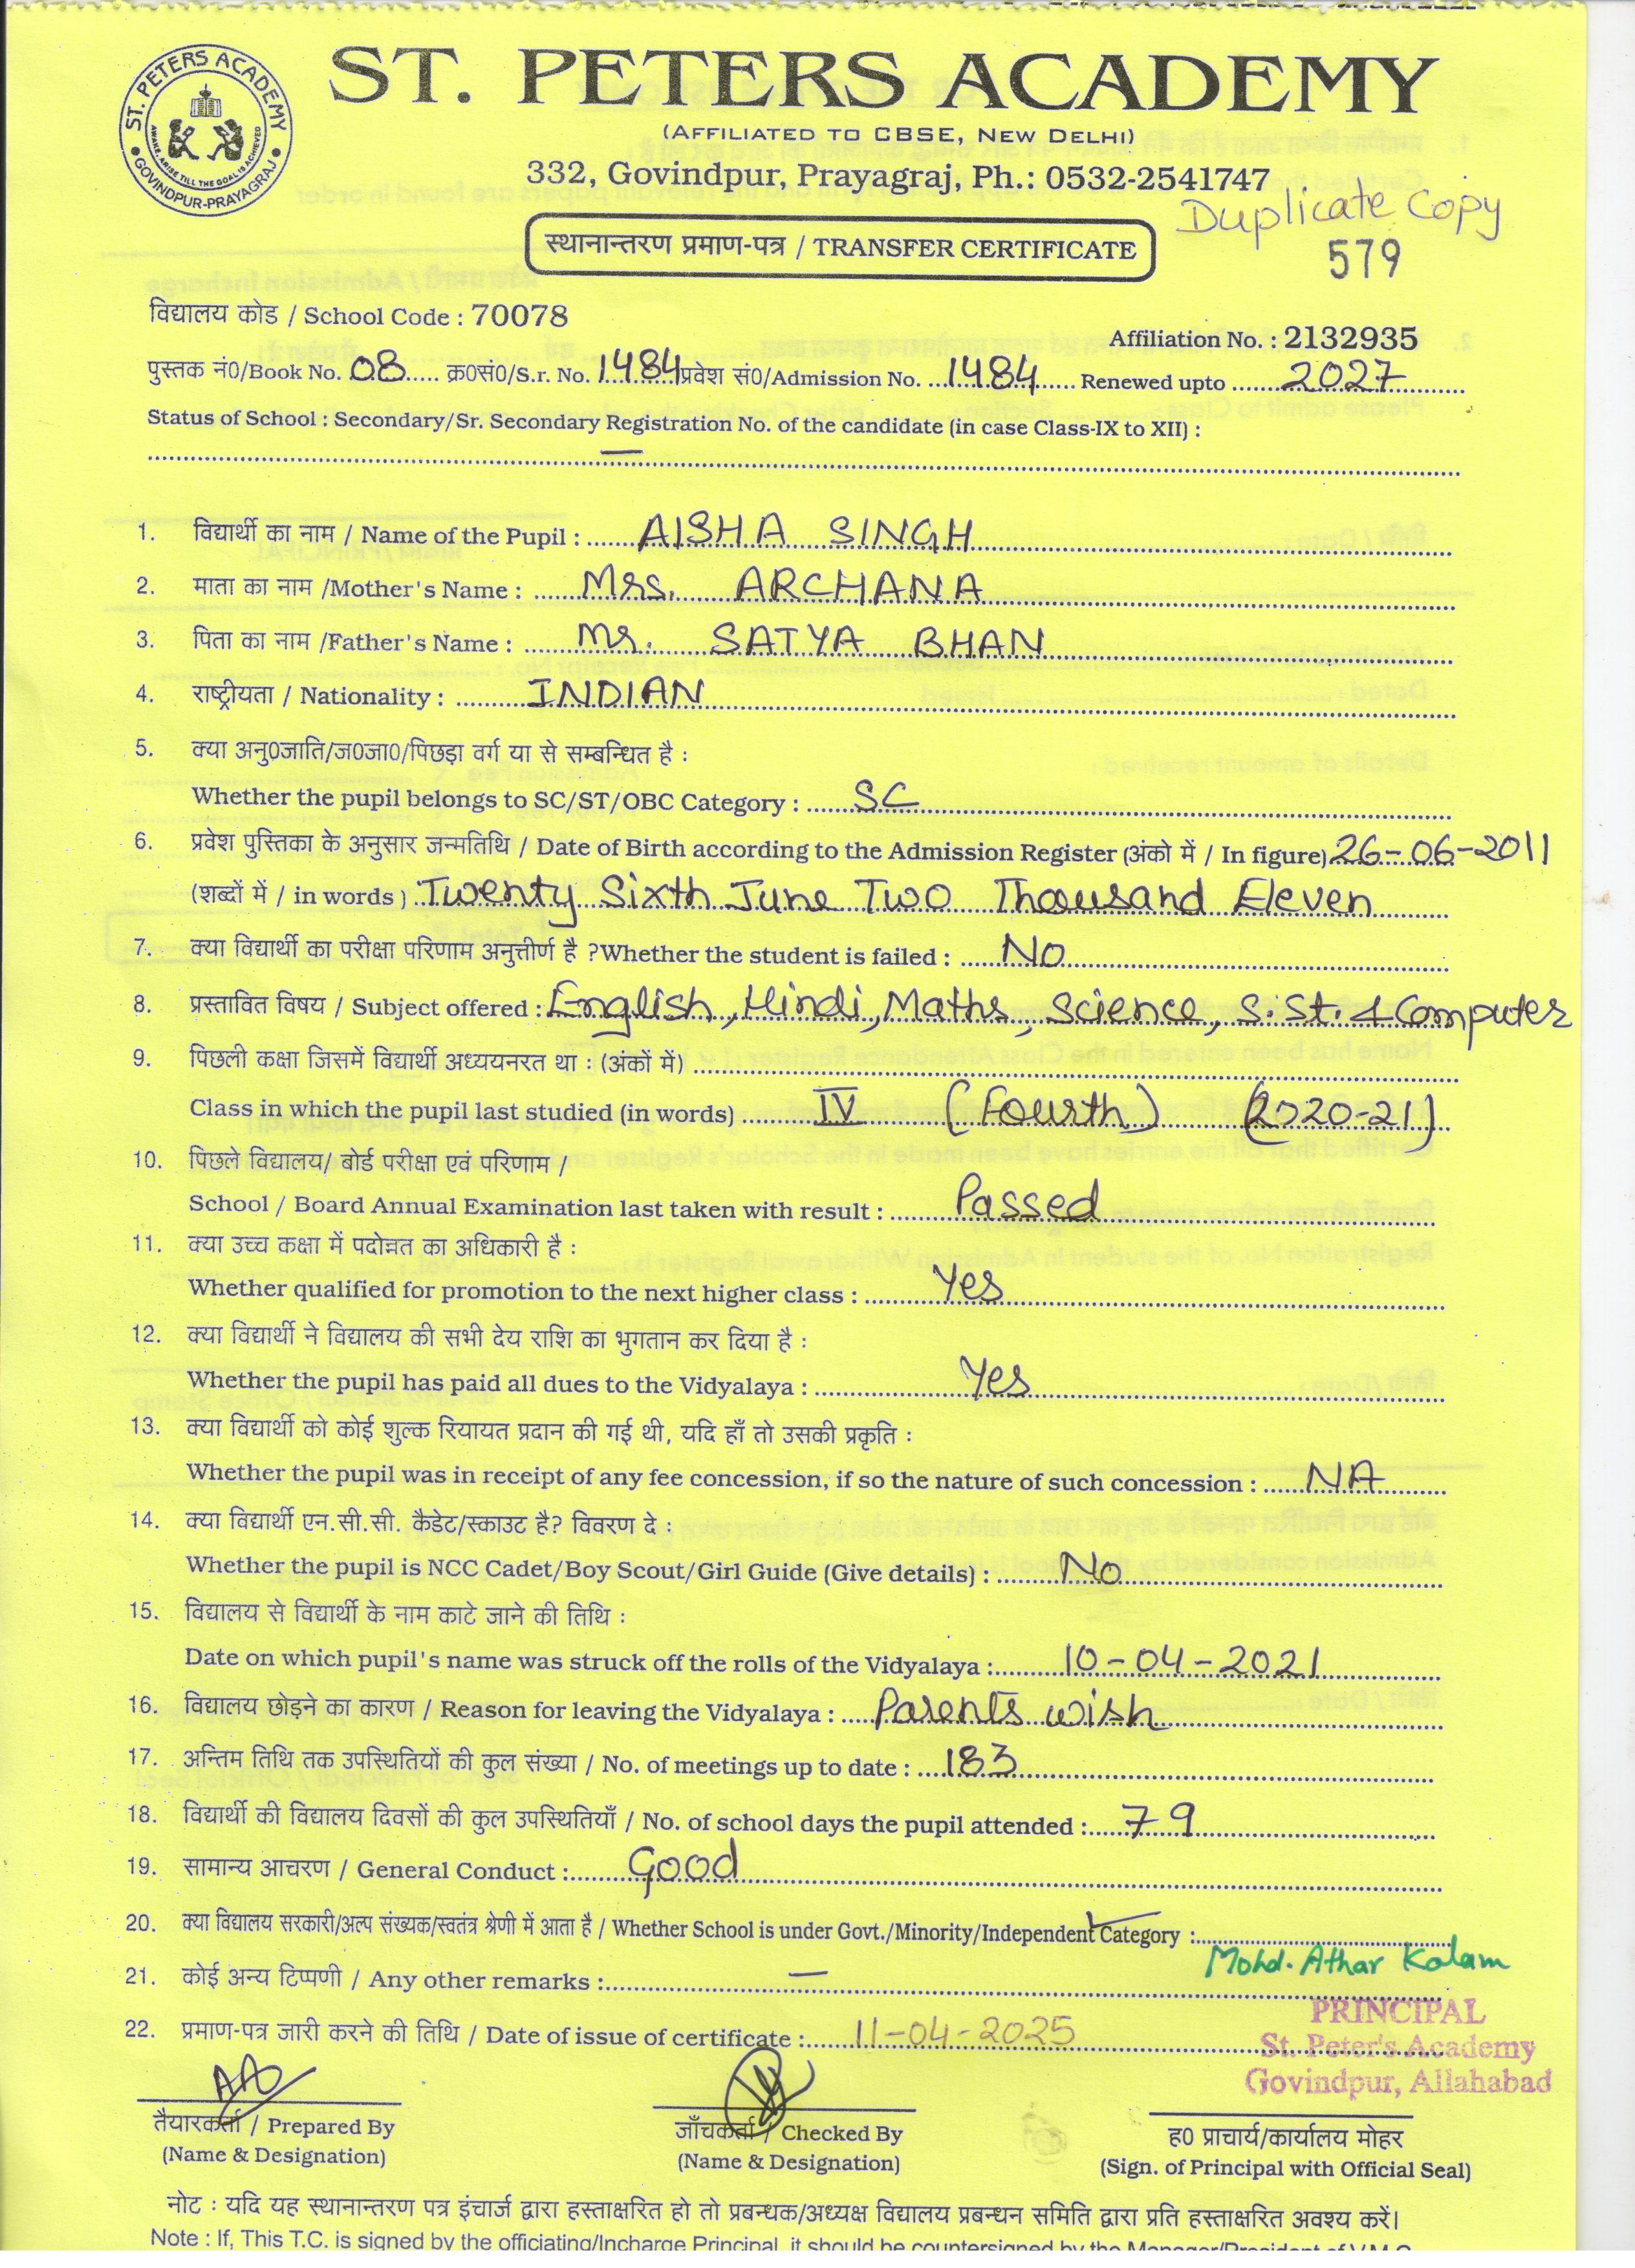 ST. PETERS ACADEMY
GOVINDPUR-PRAYAGRAJ
AWAKE, ARISE TILL THE GOAL IS ACHIEVED
ST. PETERS ACADEMY
(AFFILIATED TO CBSE, NEW DELHI)
332, Govindpur, Prayagraj, Ph.: 0532-2541747
Duplicate Copy
स्थानान्तरण प्रमाण-पत्र / TRANSFER CERTIFICATE
579
विद्यालय कोड / School Code : 70078
Affiliation No. : 2132935
पुस्तक नं0/Book No. 08 क्र0सं0/S.r. No. 1484 प्रवेश सं0/Admission No. 1484 Renewed upto 2027
Status of School : Secondary/Sr. Secondary Registration No. of the candidate (in case Class-IX to XII) :
—
1. विद्यार्थी का नाम / Name of the Pupil : AISHA SINGH
2. माता का नाम /Mother's Name : Mrs. ARCHANA
3. पिता का नाम /Father's Name : Mr. SATYA BHAN
4. राष्ट्रीयता / Nationality : INDIAN
5. क्या अनु0जाति/ज0जा0/पिछड़ा वर्ग या से सम्बन्धित है :
Whether the pupil belongs to SC/ST/OBC Category : SC
6. प्रवेश पुस्तिका के अनुसार जन्मतिथि / Date of Birth according to the Admission Register (अंको में / In figure) 26-06-2011
(शब्दों में / in words ) Twenty Sixth June Two Thousand Eleven
7. क्या विद्यार्थी का परीक्षा परिणाम अनुत्तीर्ण है ?Whether the student is failed : NO
8. प्रस्तावित विषय / Subject offered : English, Hindi, Maths, Science, S.St. & Computer
9. पिछली कक्षा जिसमें विद्यार्थी अध्ययनरत था : (अंकों में)
Class in which the pupil last studied (in words) IV (Fourth) (2020-21)
10. पिछले विद्यालय/ बोर्ड परीक्षा एवं परिणाम /
School / Board Annual Examination last taken with result : Passed
11. क्या उच्च कक्षा में पदोन्नत का अधिकारी है :
Whether qualified for promotion to the next higher class : Yes
12. क्या विद्यार्थी ने विद्यालय की सभी देय राशि का भुगतान कर दिया है :
Whether the pupil has paid all dues to the Vidyalaya : Yes
13. क्या विद्यार्थी को कोई शुल्क रियायत प्रदान की गई थी, यदि हाँ तो उसकी प्रकृति :
Whether the pupil was in receipt of any fee concession, if so the nature of such concession : NA
14. क्या विद्यार्थी एन.सी.सी. कैडेट/स्काउट है? विवरण दे :
Whether the pupil is NCC Cadet/Boy Scout/Girl Guide (Give details) : No
15. विद्यालय से विद्यार्थी के नाम काटे जाने की तिथि :
Date on which pupil's name was struck off the rolls of the Vidyalaya : 10-04-2021
16. विद्यालय छोड़ने का कारण / Reason for leaving the Vidyalaya : Parents wish
17. अन्तिम तिथि तक उपस्थितियों की कुल संख्या / No. of meetings up to date : 183
18. विद्यार्थी की विद्यालय दिवसों की कुल उपस्थितियाँ / No. of school days the pupil attended : 79
19. सामान्य आचरण / General Conduct : Good
20. क्या विद्यालय सरकारी/अल्प संख्यक/स्वतंत्र श्रेणी में आता है / Whether School is under Govt./Minority/Independent Category :
Mohd. Athar Kalam
21. कोई अन्य टिप्पणी / Any other remarks : —
PRINCIPAL
22. प्रमाण-पत्र जारी करने की तिथि / Date of issue of certificate : 11-04-2025
St. Peter's Academy
Govindpur, Allahabad
तैयारकर्ता / Prepared By
(Name & Designation)
जाँचकर्ता / Checked By
(Name & Designation)
ह0 प्राचार्य/कार्यालय मोहर
(Sign. of Principal with Official Seal)
नोट : यदि यह स्थानान्तरण पत्र इंचार्ज द्वारा हस्ताक्षरित हो तो प्रबन्धक/अध्यक्ष विद्यालय प्रबन्धन समिति द्वारा प्रति हस्ताक्षरित अवश्य करें।
Note : If, This T.C. is signed by the officiating/Incharge Principal, it should be countersigned by the Manager/President of V.M.C.